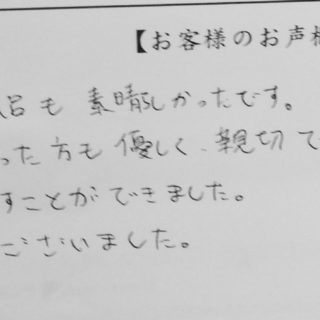 【お客様のお声
呂も 素晴らしかったです。
った方も優しく、親切で
すことができました。
ございました。